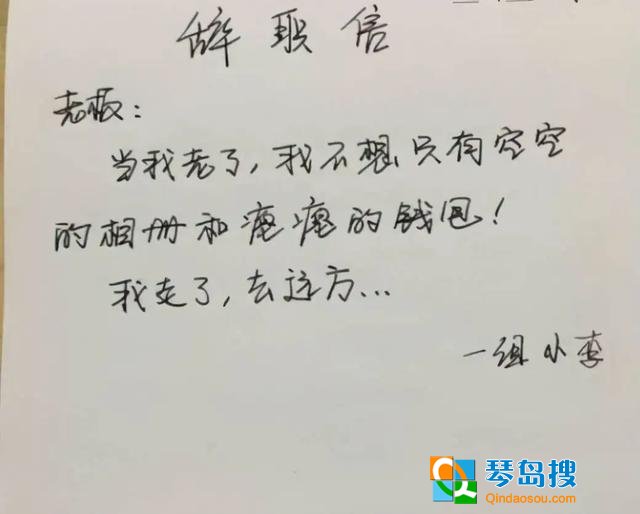 辞职信
老板:
当我老了,我不想只有空空
的相册和瘪瘪的钱包!
我走了,去远方...
一组小李
琴岛搜
Qindaosou.com